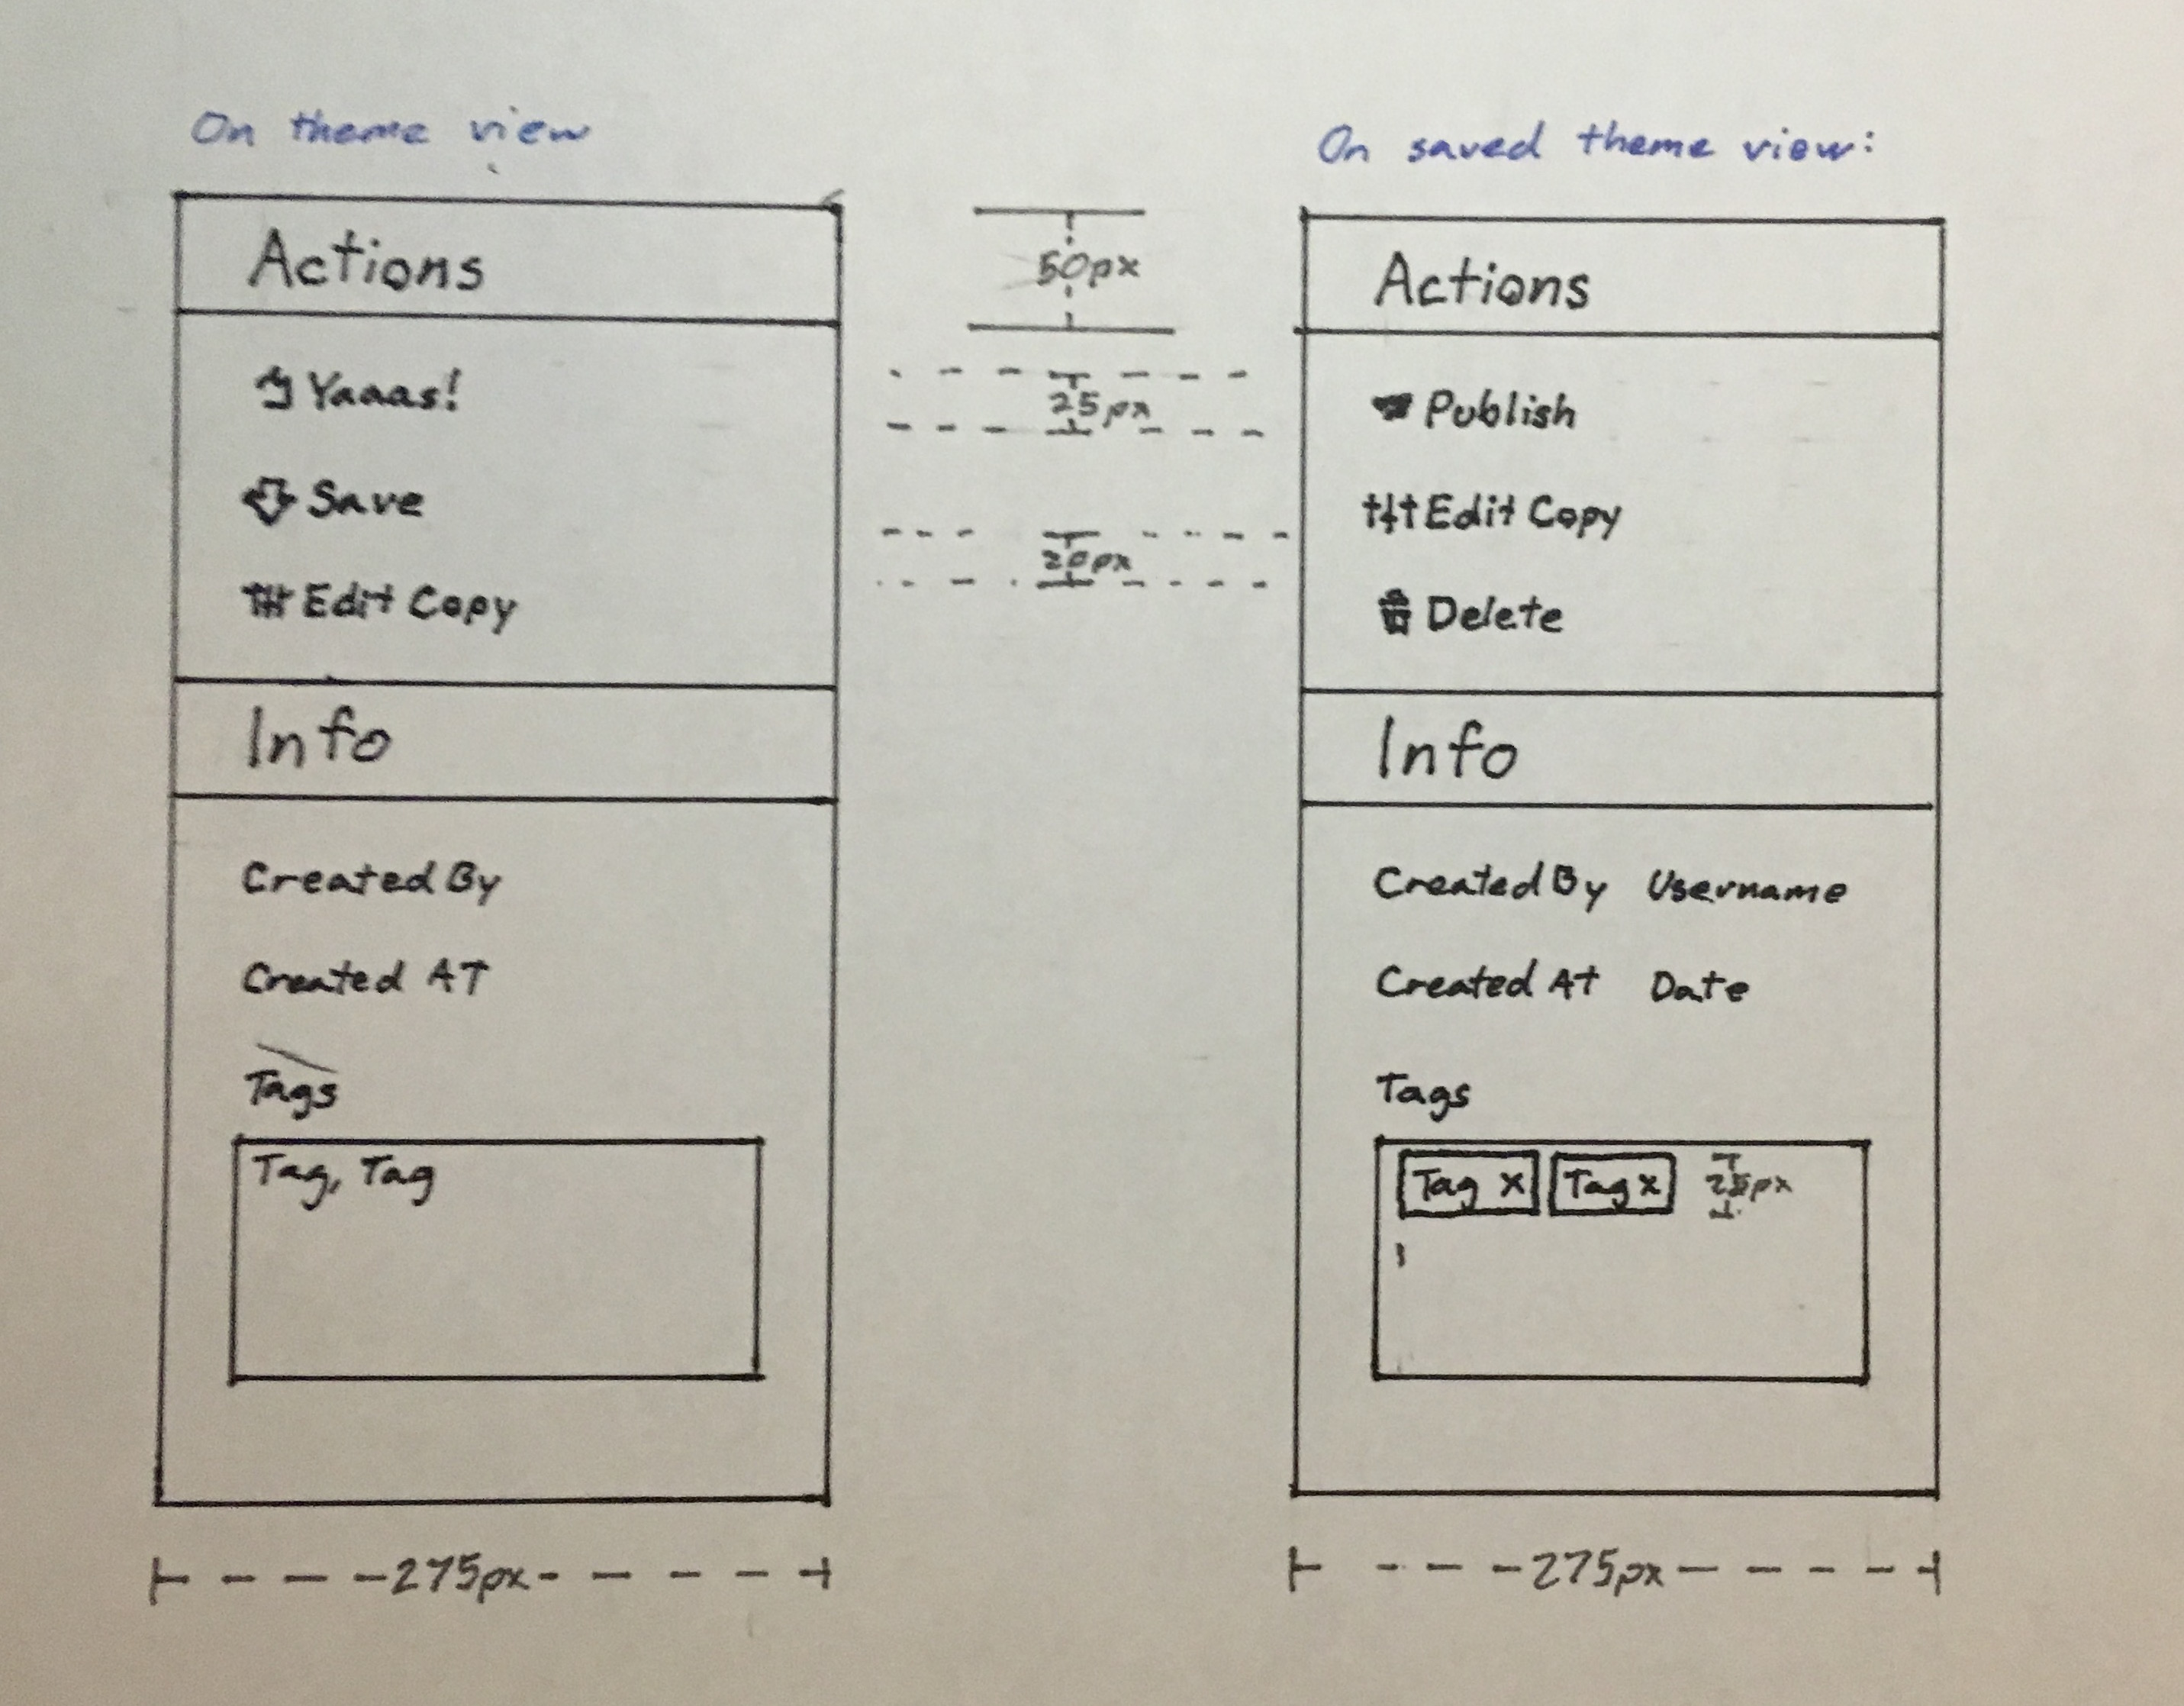 On theme view
Actions
Yaaas!
Save
Edit Copy
Info
Created By
Created AT
Tags
Tag, Tag
275px
50px
25px
20px
On saved theme view:
Actions
Publish
Edit Copy
Delete
Info
Created By Username
Created At Date
Tags
Tag x Tag x 25px
275px